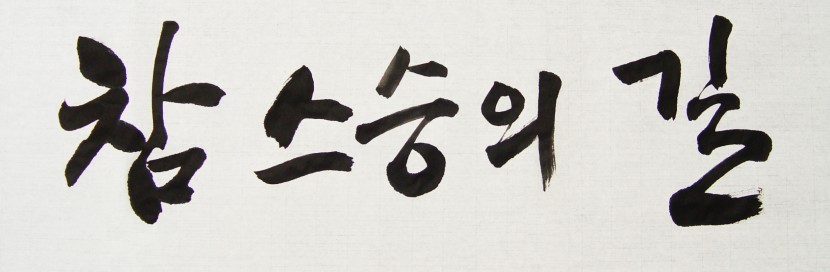 참 스승의 길